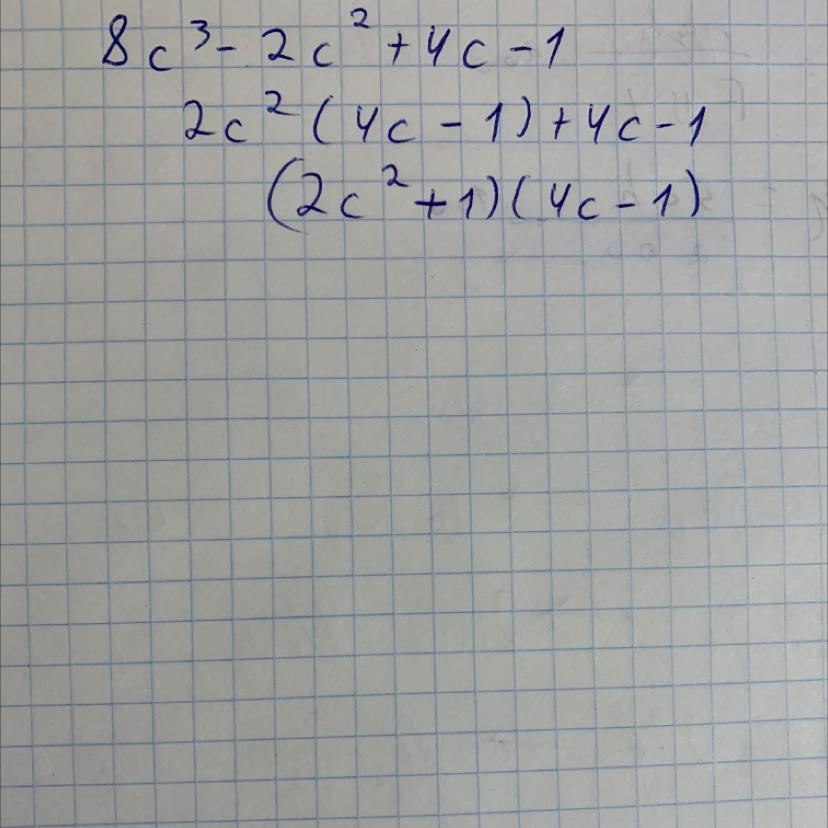 8c³ - 2c² + 4c - 1
2c² (4c - 1) + 4c - 1
(2c² + 1)(4c - 1)